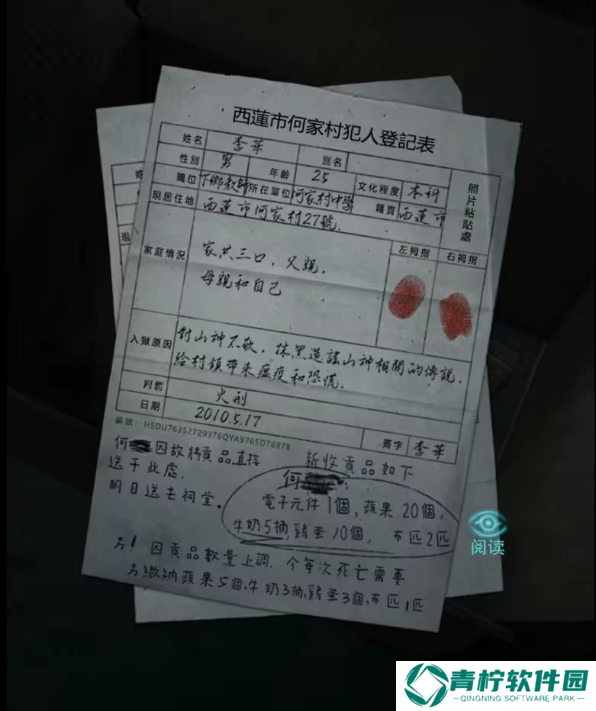 西蓮市何家村犯人登記表
姓名 李華 別名
性別 男 年齡 25 文化程度 本科
職位 下鄉教師 所在單位 何家村中學 籍貫 西蓮市
現居住地 西蓮市何家村27號
照片粘貼處
家庭情況 家共三口，父親，
母親和自己
左拇指 右拇指
入獄原因 對山神不敬，抹黑造謠山神相關的傳說，
給村鎮帶來瘟疫和恐慌。
判罰 火刑
日期 2010.5.17
編號：HSDU76352729376QYA9765D76978 簽字 李華
何 因故將貢品直接
送于此處，
明日送去祠堂。
新收貢品如下
何
電子元件1個，蘋果20個，
牛奶5抽，雞蛋10個，布匹2匹
另！因貢品數量上調，今每次死亡需要
另繳納蘋果5個，牛奶3抽，雞蛋3個，布匹1匹
閱读
青柠软件园
QINGNING SOFTWARE PARK